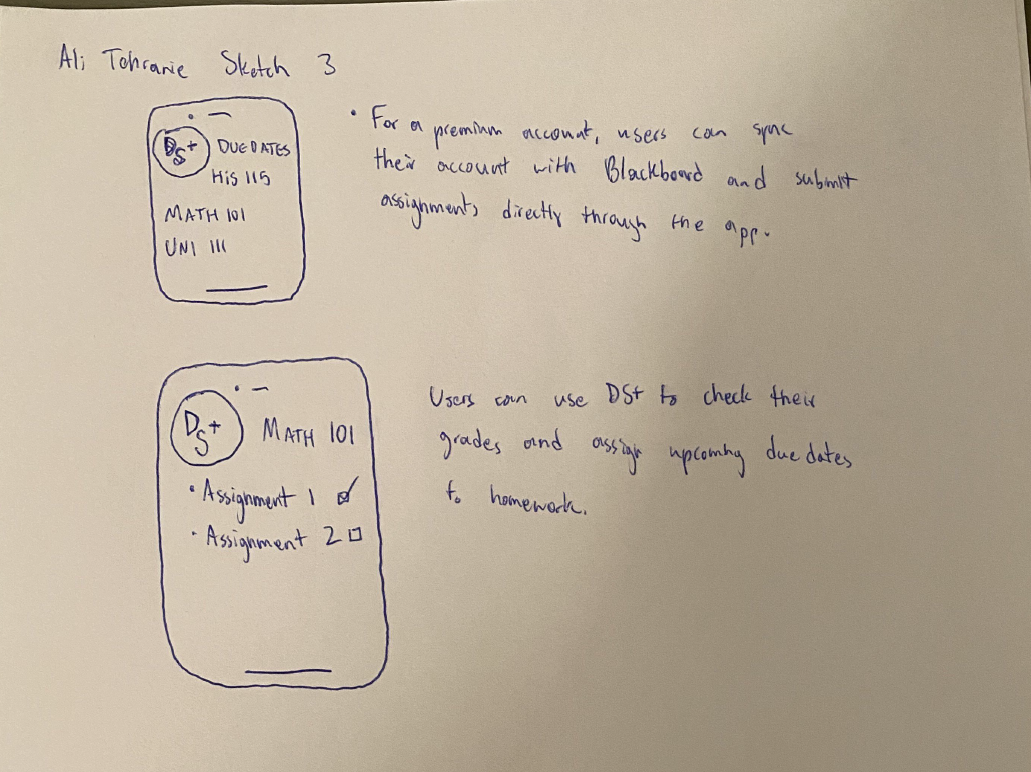 Ali Tohranie Sketch 3
DS+ DUE DATES
HiS 115
MATH 101
UNI 111
• For a premium account, users can sync
their account with Blackboard and submit
assignments directly through the app.
DS+ MATH 101
• Assignment 1 ☑
• Assignment 2 ☐
Users can use DS+ to check their
grades and assign upcoming due dates
to homework.